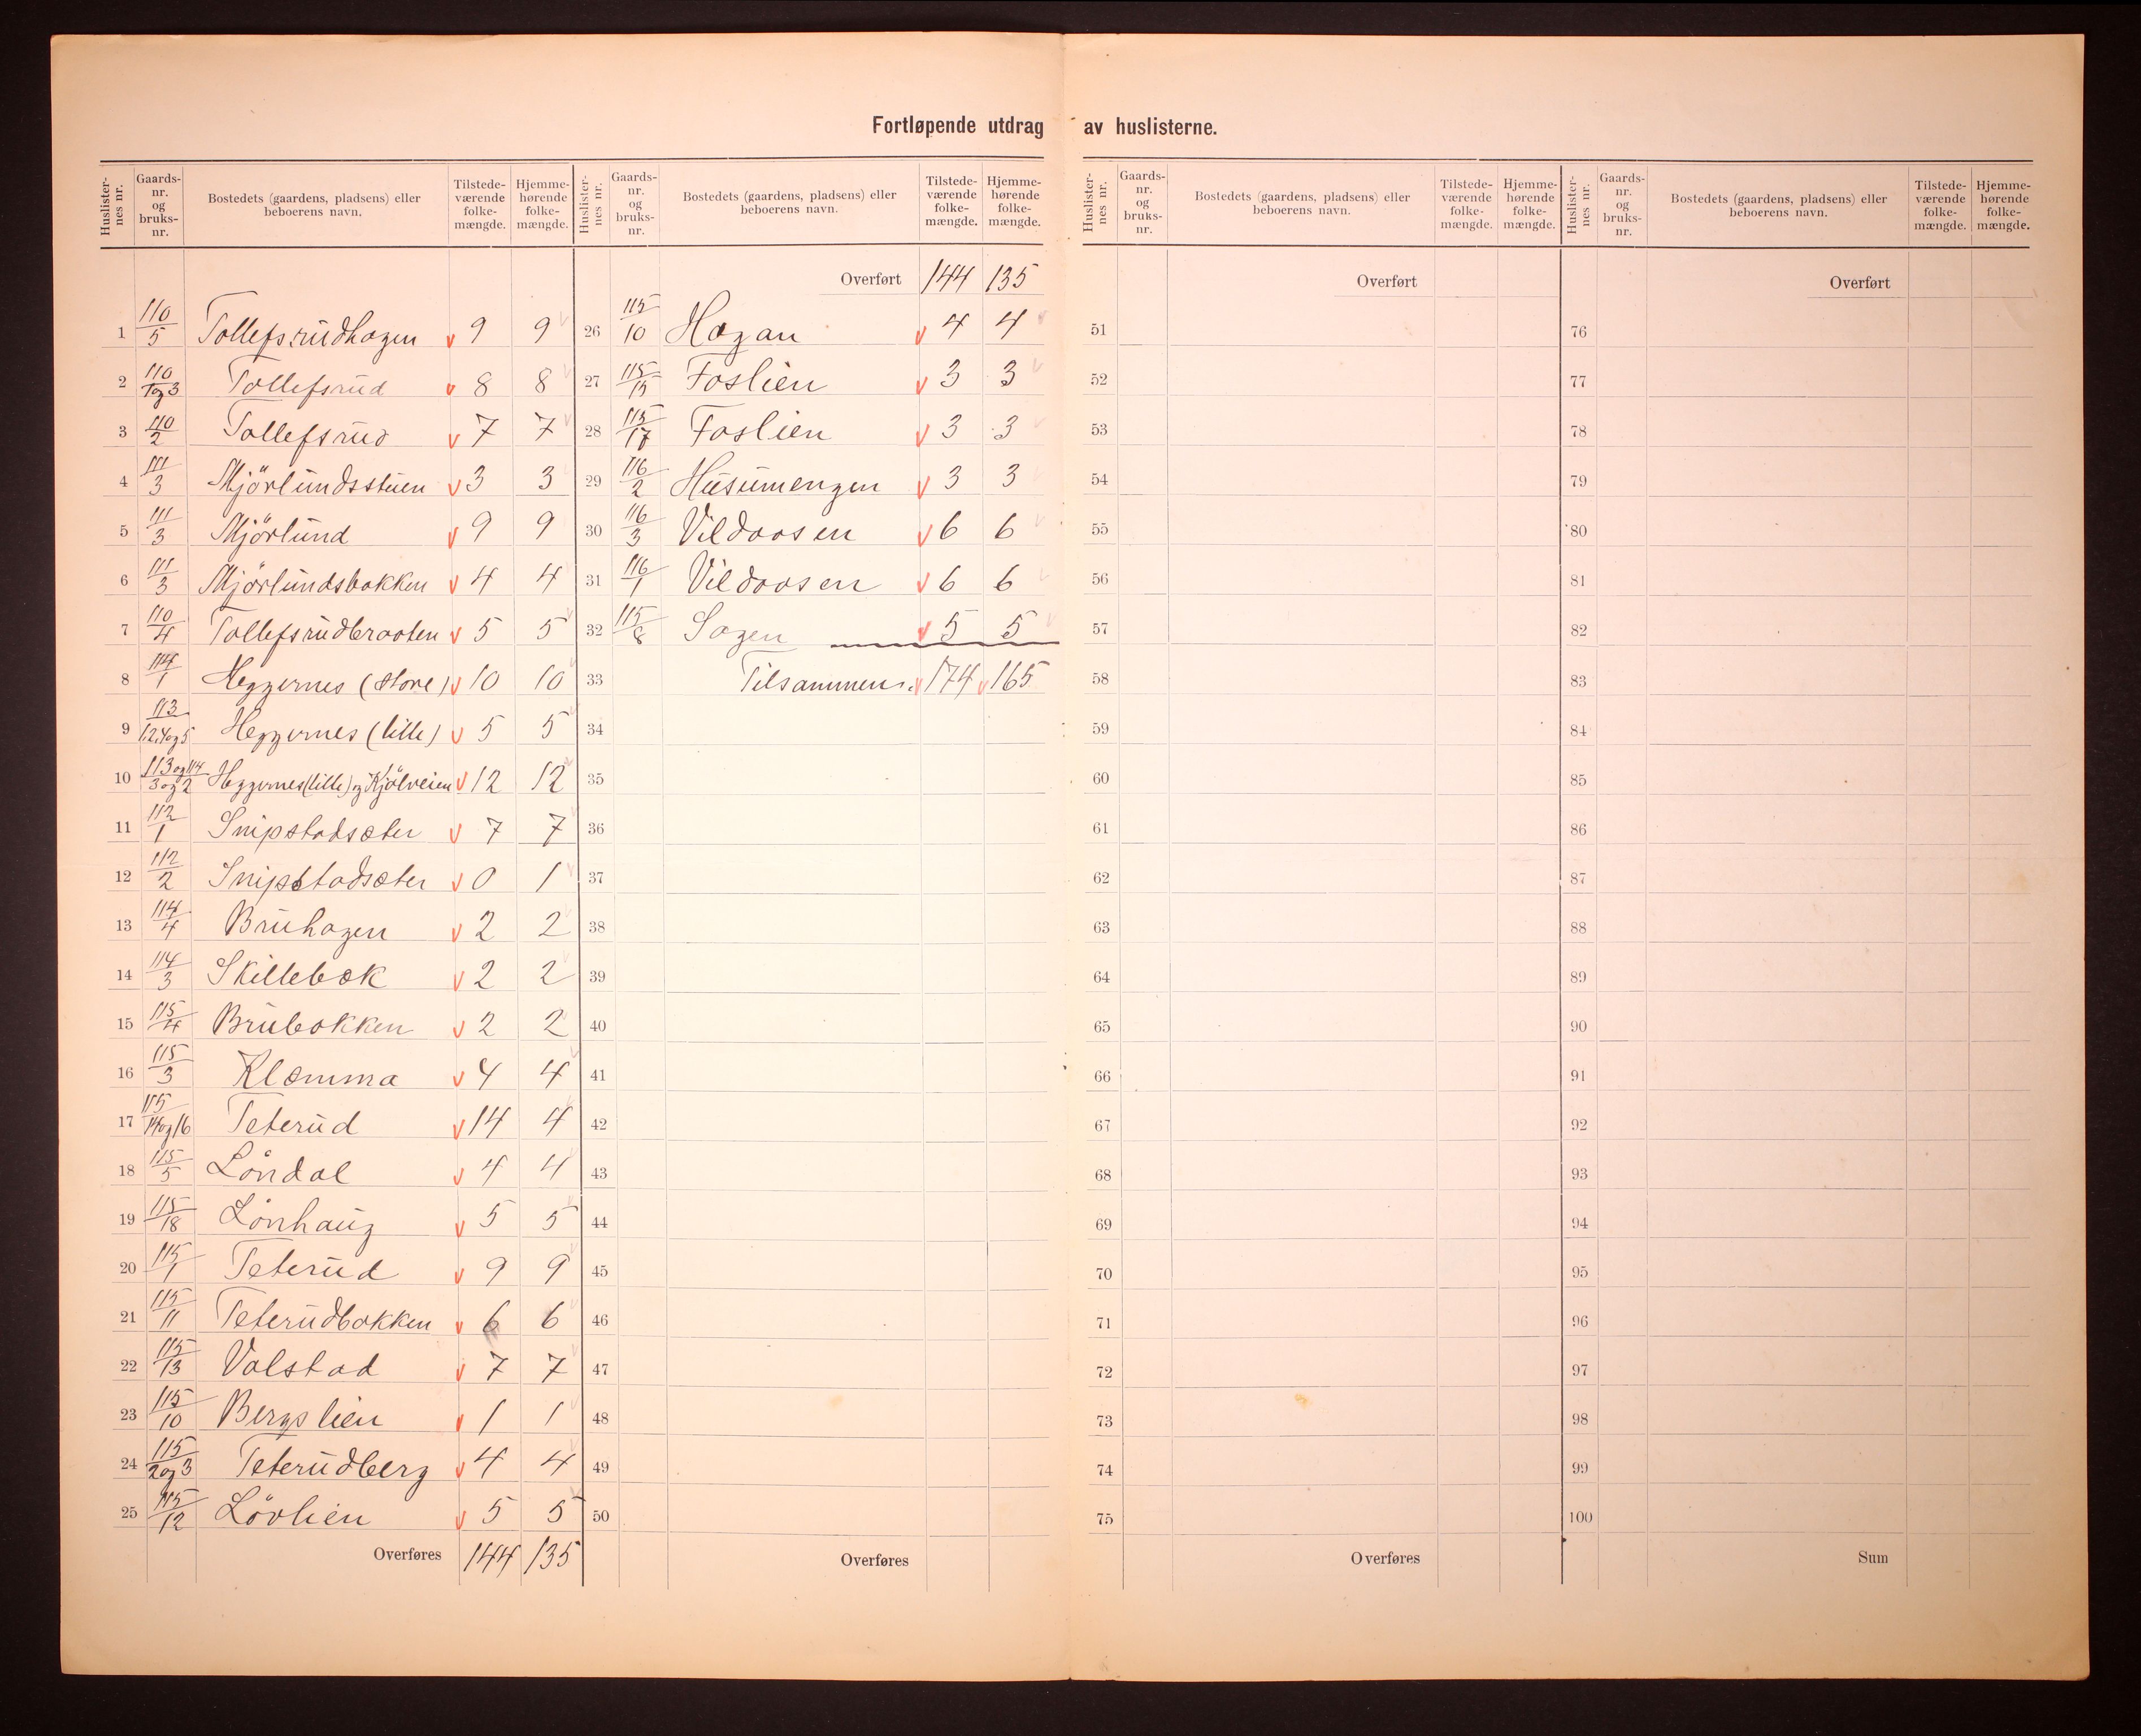 Fortløpende utdrag av huslisterne.
Huslister-nes nr. Gaards-nr. og bruks-nr. Bostedets (gaardens, pladsens) eller beboerens navn. Tilstede-værende folke-mængde. Hjemme-hørende folke-mængde.
1 110/5 Tollefsrudhagen v 9 9
2 110/1og3 Tollefsrud v 8 8
3 110/2 Tollefsrud v 7 7
4 111/3 Mjörlundsstuen v 3 3
5 111/3 Mjörlund v 9 9
6 111/3 Mjörlundsbakken v 4 4
7 110/4 Tollefsrudbraaten v 5 5
8 114/1 Heggernes (store) v 10 10
9 113/1.2.4og5 Heggernes (lille) v 5 5
10 113og114/3og2 Heggernes(lille)og Kjölveien v 12 12
11 112/1 Snipstadsæter v 7 7
12 112/2 Snipstadsæter v 0 1
13 114/4 Bruhagen v 2 2
14 114/3 Skillebæk v 2 2
15 115/4 Brubakken v 2 2
16 115/3 Klæmma v 4 4
17 115/14og16 Teterud v 14 4
18 115/5 Löndal v 4 4
19 115/18 Lönhaug v 5 5
20 115/1 Teterud v 9 9
21 115/11 Teterudbakken v 6 6
22 115/13 Volstad v 7 7
23 115/10 Bergslien v 1 1
24 115/2og3 Teterudberg v 4 4
25 115/12 Lövlien v 5 5
Overføres 144 135
Huslister-nes nr. Gaards-nr. og bruks-nr. Bostedets (gaardens, pladsens) eller beboerens navn. Tilstede-værende folke-mængde. Hjemme-hørende folke-mængde.
Overført 144 135
26 115/10 Hagan v 4 4
27 115/15 Foslien v 3 3
28 115/17 Foslien v 3 3
29 116/2 Husumengen v 3 3
30 116/3 Vildaasen v 6 6
31 116/1 Vildaasen v 6 6
32 115/8 Sagen v 5 5
33 Tilsammen v 174 v 165
34
35
36
37
38
39
40
41
42
43
44
45
46
47
48
49
50
Overføres
Huslister-nes nr. Gaards-nr. og bruks-nr. Bostedets (gaardens, pladsens) eller beboerens navn. Tilstede-værende folke-mængde. Hjemme-hørende folke-mængde.
Overført
51
52
53
54
55
56
57
58
59
60
61
62
63
64
65
66
67
68
69
70
71
72
73
74
75
Overføres
Huslister-nes nr. Gaards-nr. og bruks-nr. Bostedets (gaardens, pladsens) eller beboerens navn. Tilstede-værende folke-mængde. Hjemme-hørende folke-mængde.
Overført
76
77
78
79
80
81
82
83
84
85
86
87
88
89
90
91
92
93
94
95
96
97
98
99
100
Sum